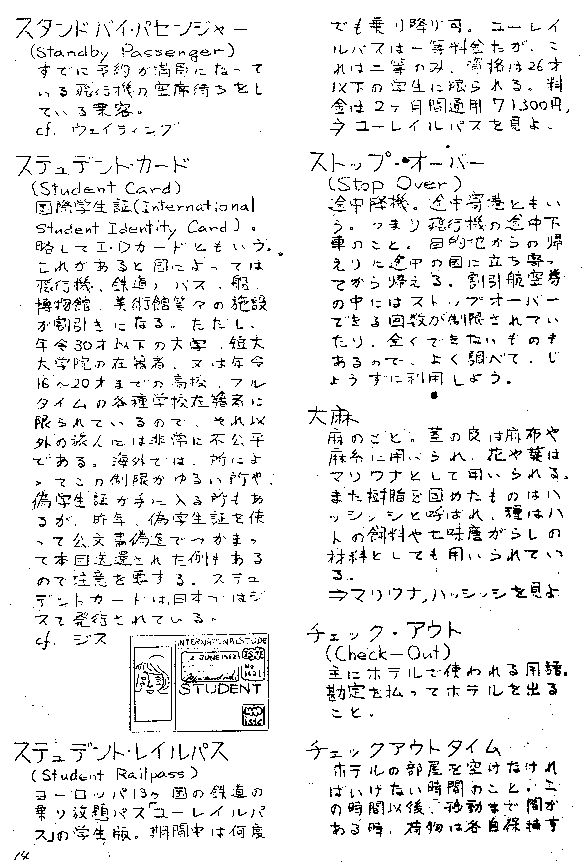 スタンドバイ・パセンジャー
(Standby Passenger)
すでに予約が満席になって
いる飛行機の空席待ちをし
ている乗客。
cf. ウェイティング
ステュデント・カード
(Student Card)
国際学生証(International
Student Identity Card)。
略してI・Dカードともいう。
これがあると国によっては
飛行機、鉄道、バス、船、
博物館、美術館等々の施設
が割引きになる。ただし、
年令30才以下の大学、短大
大学院の在籍者、又は年令
16〜20才までの高校、フル
タイムの各種学校在籍者に
限られているので、それ以
外の旅人には非常に不公平
である。海外では、所によ
ってこの制限がゆるい所や、
偽学生証が手に入る所もあ
るが、昨年、偽学生証を使
って公文書偽造でつかまっ
て本国送還された例もある
ので注意を要する。ステュ
デントカードは日本ではジ
スで発行されている。
cf. ジス
INTERNATIONAL STUDE
2 JUNE 1982
STUDENT
ステュデント・レイルパス
(Student Railpass)
ヨーロッパ13ヶ国の鉄道の
乗り放題パス「ユーレイルパ
ス」の学生版。期間中は何度
でも乗り降り可。ユーレイ
ルパスは一等料金だが、こ
れは二等のみ、資格は26才
以下の学生に限られる。料
金は2ヶ月間通用71,300円、
⇒ユーレイルパスを見よ、
ストップ・オーバー
(Stop Over)
途中降機。途中寄港ともい
う。つまり飛行機の途中下
車のこと。目的地からの帰
えりに途中の国に立ち寄っ
てから帰える。割引航空券
の中にはストップオーバー
できる回数が制限されてい
たり、全くできないものも
あるので、よく調べて、じ
ょうずに利用しよう。
大麻
麻のこと。茎の皮は麻布や
麻糸に用いられ、花や葉は
マリワナとして用いられる。
また樹脂を固めたものはハ
ッシッシと呼ばれ、種はハ
トの飼料や七味唐がらしの
材料としても用いられてい
る。
⇒マリワナ,ハッシッシを見よ
チェック・アウト
(Check-Out)
主にホテルで使われる用語。
勘定を払ってホテルを出る
こと。
チェックアウトタイム
ホテルの部屋を空けなけれ
ばいけない時間のこと。こ
の時間以後、移動まで間が
ある時、荷物は各自保持す
14